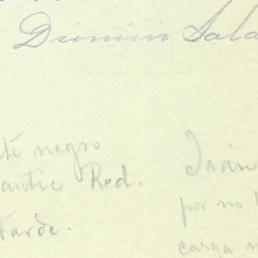 Dionisio Sala
té negro
antic Red.
tarde.
Irán
por no l
carga n